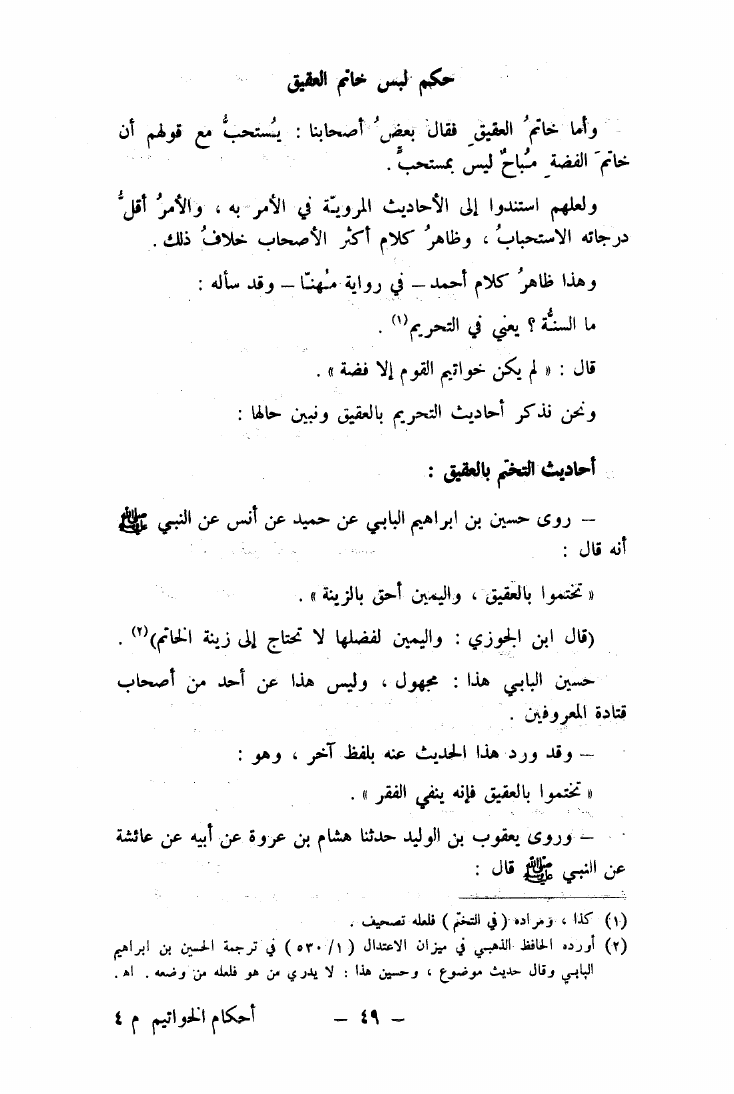 حكم لبس خاتم العقيق
وأما خاتمُ العقيقِ فقال بعضُ أصحابنا : يُستحبُّ مع قولهم أن
خاتمَ الفضةِ مُباحٌ ليس بمستحبٍّ .
ولعلهم استندوا إلى الأحاديث المرويّة في الأمر به ، والأمرُ أقلُّ
درجاته الاستحبابُ ، وظاهرُ كلام أكثر الأصحاب خلافُ ذلك .
وهذا ظاهرُ كلام أحمد – في رواية مُهنّا – وقد سأله :
ما السنُّة ؟ يعني في التحريم(١) .
قال : « لم يكن خواتيم القوم إلا فضة » .
ونحن نذكر أحاديث التحريم بالعقيق ونبين حالها :
أحاديث التختم بالعقيق :
– روى حسين بن ابراهيم البابي عن حميد عن أنس عن النبي ﷺ
أنه قال :
« تختموا بالعقيق ، واليمين أحق بالزينة » .
(قال ابن الجوزي : واليمين لفضلها لا تحتاج إلى زينة الخاتم)(٢) .
حسين البابي هذا : مجهول ، وليس هذا عن أحد من أصحاب
قتادة المعروفين .
– وقد ورد هذا الحديث عنه بلفظ آخر ، وهو :
« تختموا بالعقيق فإنه ينفي الفقر » .
– وروى يعقوب بن الوليد حدثنا هشام بن عروة عن أبيه عن عائشة
عن النبي ﷺ قال :
(١) كذا ، ومراده ( في التختّم ) فلعله تصحيف .
(٢) أورده الحافظ الذهبي في ميزان الاعتدال ( ١/ ٥٣٠ ) في ترجمة الحسين بن ابراهيم
البابي وقال حديث موضوع ، وحسين هذا : لا يدري من هو فلعله من وضعه . اه .
– ٤٩ – أحكام الخواتيم م ٤